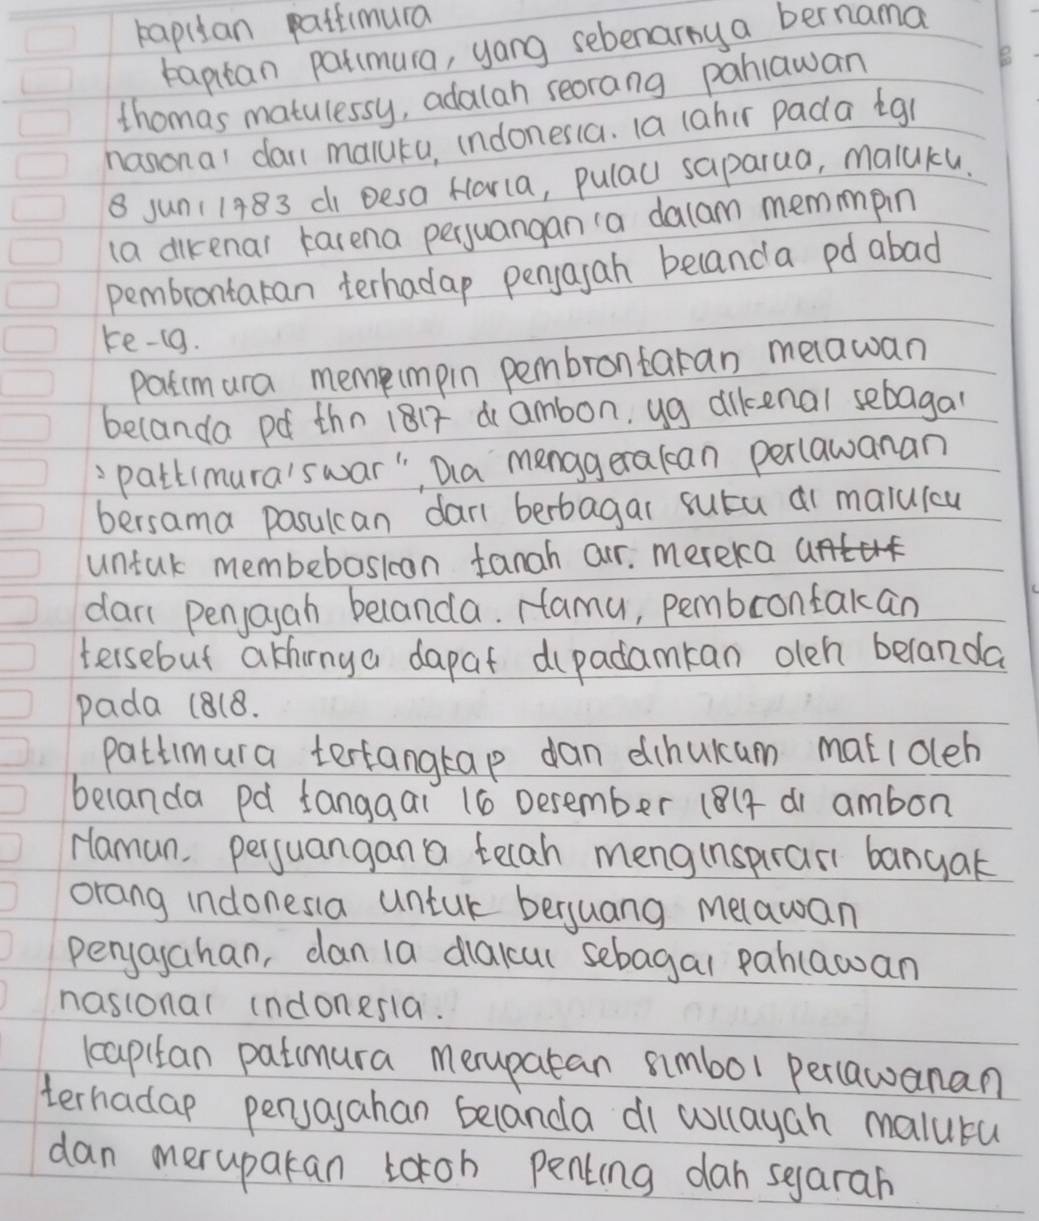 kapitan pattimura
kapitan patimura, yang sebenarnya bernama
thomas matulessy, adalah seorang pahlawan
nasional dari maluku, indonesia. ia lahir pada tgl
8 juni 1783 di Desa Haria, pulau saparua, maluku.
ia dikenal karena perjuangan ia dalam memmpin
pembrontakan terhadap penjajah belanda pd abad
ke-19.
patimura memeimpin pembrontakan melawan
belanda pd thn 1817 di ambon. yg dikenal sebagai
"pattimura's war", Dia menggerakan perlawanan
bersama pasukan dari berbagai suku di maluku
untuk membebaskan tanah air. mereka untuk
dari penjajah belanda. Namu, pembrontakan
tersebut akhirnya dapat dipadamkan oleh belanda
pada 1818.
pattimura tertangkap dan dihukum mati oleh
belanda pd tanggal 16 Desember 1817 di ambon
Namun. perjuangana telah menginspirasi banyak
orang indonesia untuk berjuang melawan
penjajahan, dan ia diakui sebagai pahlawan
nasional indonesia.
kapitan patimura merupakan simbol perlawanan
terhadap penjajahan belanda di wilayah maluku
dan merupakan tokoh penting dah sejarah